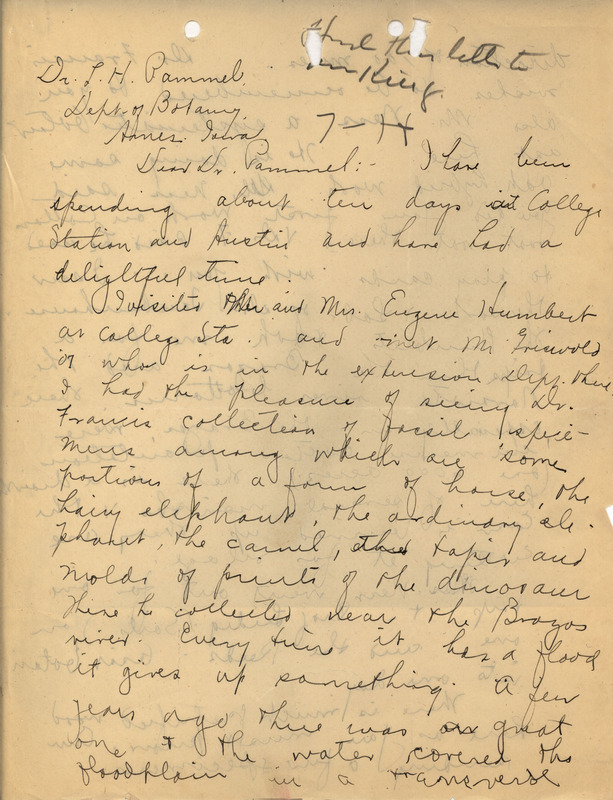 this letter to
King.
7-14
Dr. L. H. Pammel.
Dept. of Botany
Ames. Iowa
Dear Dr. Pammel:- I have been
spending about ten days at College
Station and Austin and have had a
delightful time.
I visited Mr. and Mrs. Eugene Humbert
at College Sta. and met Mr. Griswold
who is in the extension dept. there.
I had the pleasure of seeing Dr.
Francis collection of fossil spec-
mens among which are some
portions of a form of horse, the
hairy elephant, the ordinary ele-
phant, the camel, the tapir and
molds of prints of the dinosaur
These he collected near the Brazos
river. Every time it has a flood
it gives up something. A few
years ago there was a great
one & the water covered the
floodplain in a transverse